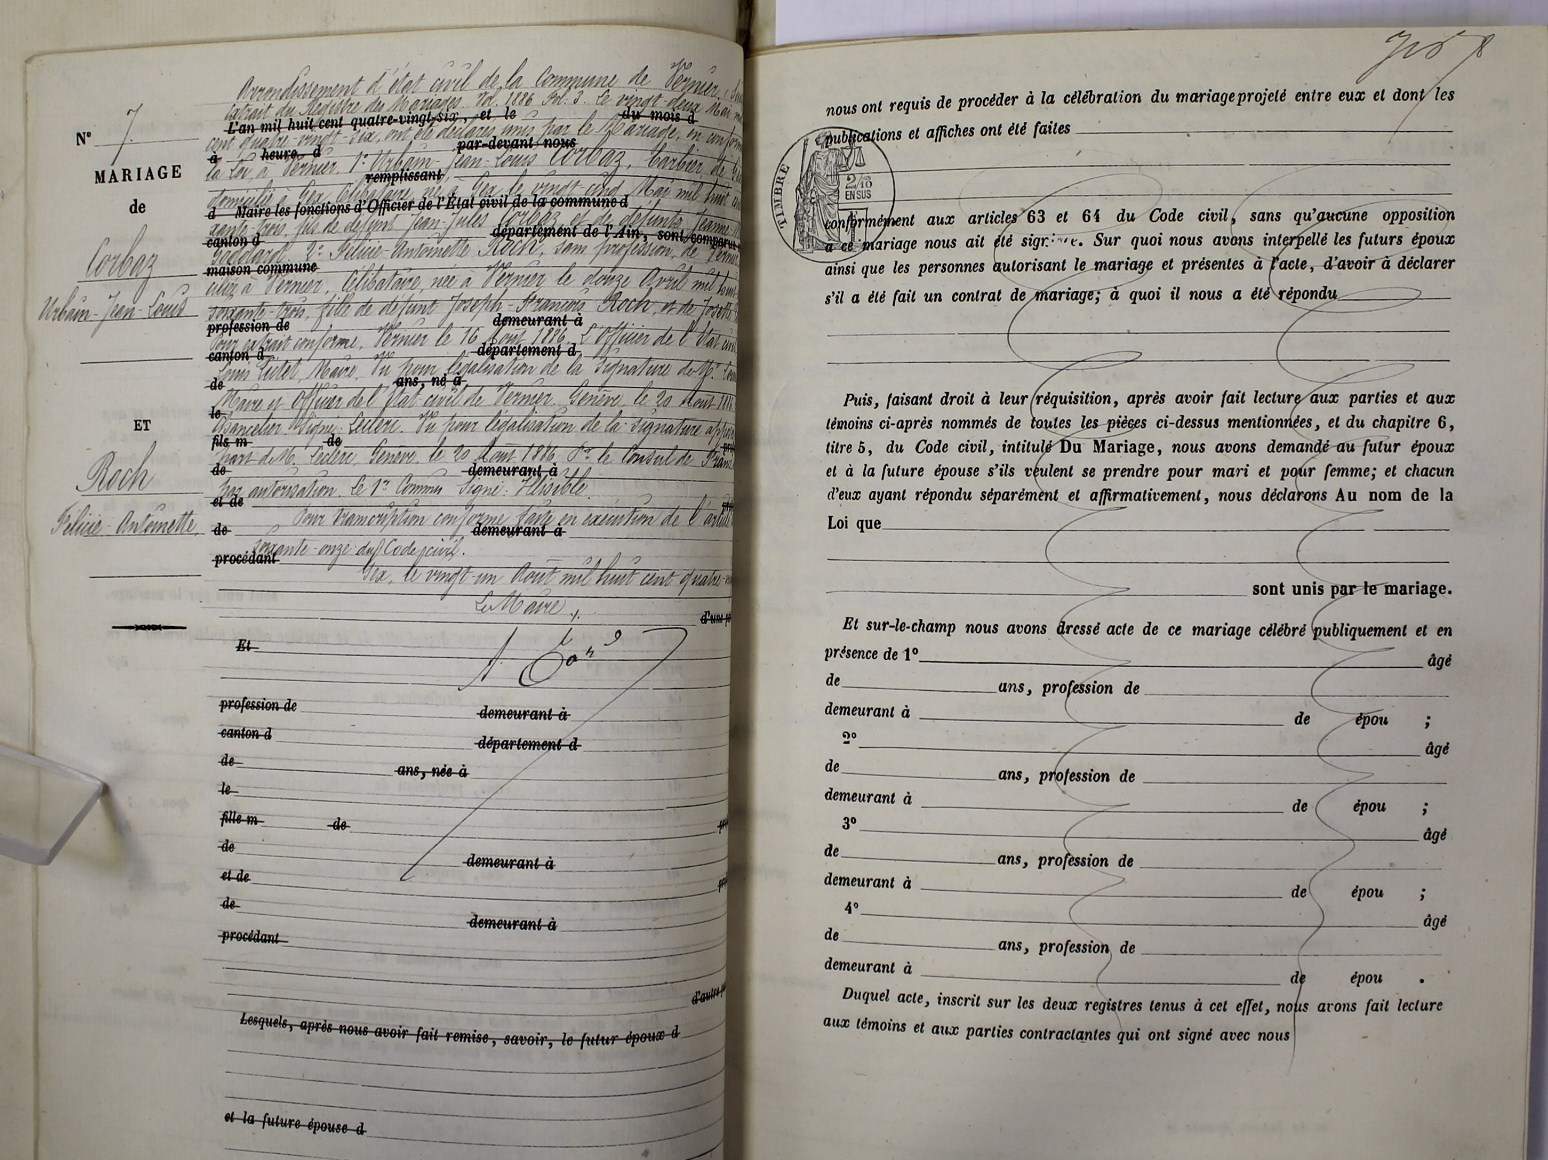 N° 7.
MARIAGE
de
Corbaz
Urbain-Jean-Louis
ET
Roch
Félicie Antoinette
Arrondissement d'état civil de la Commune de Vernier,
Extrait du Registre des Mariages. Vol. 1886 Fol. 3. Le vingt-deux Mai
L'an mil huit cent quatre-vingt-six, et le du mois d
cent quatre-vingt-six, ont été déclarés unis par le Mariage, en
à heure d par-devant nous
la Loi à Vernier. 1° Urbain-Jean-Louis Corbaz, Barbier, de
remplissant
domicilié à Gex, Célibataire, né à Gex, le vingt-cinq Mai mil huit
d Maire les fonctions d'Officier de l'État civil de la commune d
sante trois, fils de défunt Jean-Jules Corbaz et de défunte Jeanne
canton d département de l'Ain, sont comparus
2° Félicie-Antoinette Roch, sans profession, de Vernier
maison commune
ciliée à Vernier, Célibataire, née à Vernier le douze Avril mil huit
soixante-trois, fille de défunt Joseph-François Roch, et de
profession de demeurant à
Pour extrait conforme, Vernier le 16 Août 1886. L'Officier de l'État civil
canton d département d
Louis Maire. Vu pour légalisation de la Signature de Mr
de ans, né à
Maire et Officier de l'État civil de Vernier. Genève, le 20 Août 1886
le
Chancelier. Signé: Leclerc. Vu pour légalisation de la signature
fils m de
part de M. Leclerc. Genève, le 20 Août 1886. Pr. le Consul de France
de demeurant à
par autorisation. Le 1er Commis Signé: Illisible.
et de
Pour transcription conforme faite en exécution de l'article
de demeurant à
soixante-onze du Code civil.
procédant
Gex, le vingt-un Août mil huit cent quatre
Le Maire,
d'une
Et
profession de demeurant à
canton d département d
de ans, née à
le
fille m de
de demeurant à
et de
de demeurant à
procédant
d'autre
Lesquels, après nous avoir fait remise, savoir, le futur époux d
et la future épouse d
nous ont requis de procéder à la célébration du mariage projeté entre eux et dont les
publications et affiches ont été faites
TIMBRE
2/10
EN SUS
conformément aux articles 63 et 64 du Code civil, sans qu'aucune opposition
à ce mariage nous ait été signifiée. Sur quoi nous avons interpellé les futurs époux
ainsi que les personnes autorisant le mariage et présentes à l'acte, d'avoir à déclarer
s'il a été fait un contrat de mariage; à quoi il nous a été répondu
Puis, faisant droit à leur réquisition, après avoir fait lecture aux parties et aux
témoins ci-après nommés de toutes les pièces ci-dessus mentionnées, et du chapitre 6,
titre 5, du Code civil, intitulé Du Mariage, nous avons demandé au futur époux
et à la future épouse s'ils veulent se prendre pour mari et pour femme; et chacun
d'eux ayant répondu séparément et affirmativement, nous déclarons Au nom de la
Loi que
sont unis par le mariage.
Et sur-le-champ nous avons dressé acte de ce mariage célébré publiquement et en
présence de 1° âgé
de ans, profession de
demeurant à de épou ;
2° âgé
de ans, profession de
demeurant à de épou ;
3° âgé
de ans, profession de
demeurant à de épou ;
4° âgé
de ans, profession de
demeurant à de épou .
Duquel acte, inscrit sur les deux registres tenus à cet effet, nous avons fait lecture
aux témoins et aux parties contractantes qui ont signé avec nous